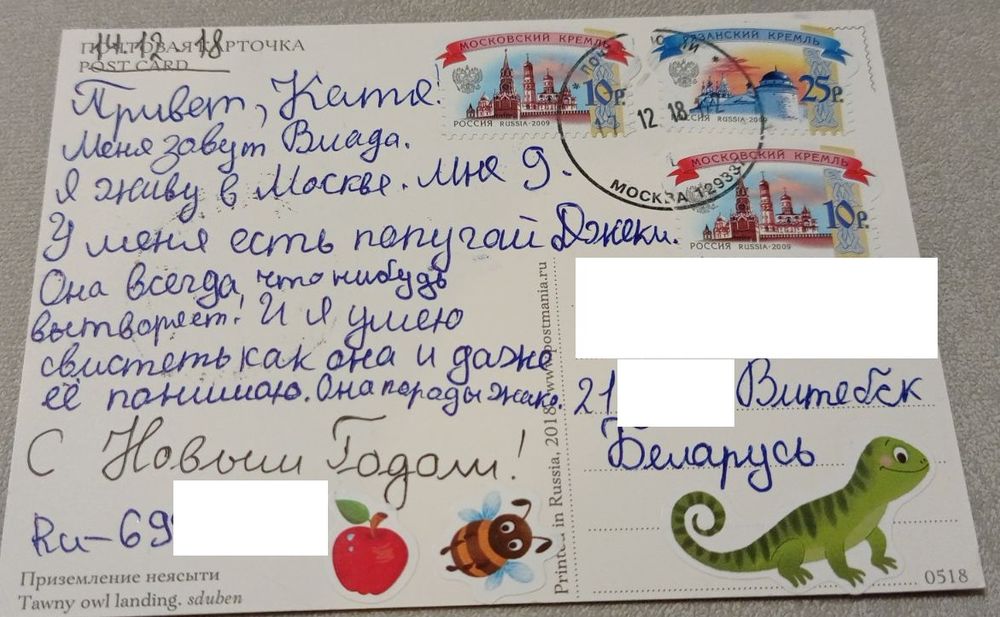 ПОЧТОВАЯ КАРТОЧКА
14.12 18
POST CARD
МОСКОВСКИЙ КРЕМЛЬ
10р.
РОССИЯ RUSSIA·2009
КАЗАНСКИЙ КРЕМЛЬ
25р.
РОССИЯ RUSSIA·2009
12 18
МОСКВА 12933
МОСКОВСКИЙ КРЕМЛЬ
10р.
РОССИЯ RUSSIA·2009
Привет, Катя!
Меня завут Влада.
Я живу в Москве. Мне 9.
У меня есть попугай Джеки.
Она всегда, что нибудь
вытворяет! И я умею
свистеть как она и даже
её понимаю. Она породы жако.
С Новым Годом!
Ru-69
Приземление неясыти
Tawny owl landing. sduben
Printed in Russia, 2018. www.postmania.ru
21 Витебск
Беларусь
0518